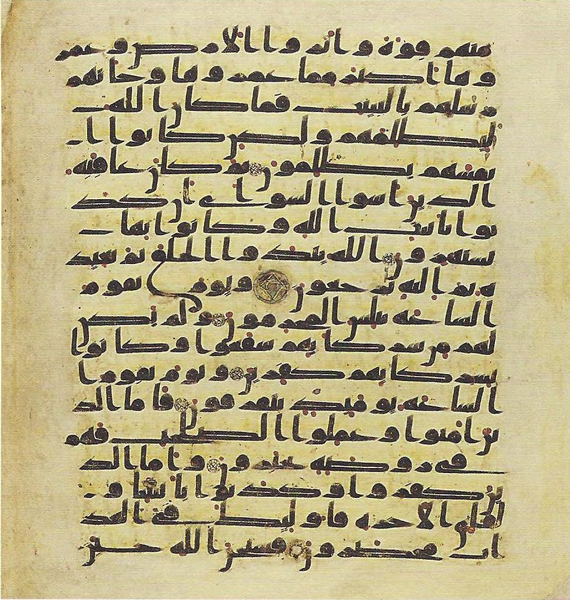 منهم قوة واثاروا الارض وعمر
وها اكثر مما عمروها وجاتهم
رسلهم بالبينت فما كان الله
ليظلمهم ولكن كانوا ا
نفسهم يظلمون ثم كان عاقبة
الذين اسوا السواى ان كذ
بوا بايت الله وكانوا بها
يستهزون الله يبدوا الخلق ثم يعيد
ه ثم اليه ترجعون ويوم تقوم
الساعة يبلس المجرمون ولم يكن
لهم من شركايهم شفعوا وكانوا
بشركايهم كفرين ويوم تقوم ا
لساعة يوميذ يتفرقون فاما الذ
ين امنوا وعملوا الصلحت فهم
في روضة يحبرون واما الذ
ين كفروا وكذبوا باياتنا و
لقاى الاخرة فاوليك في العذ
اب محضرون فسبحن الله حين